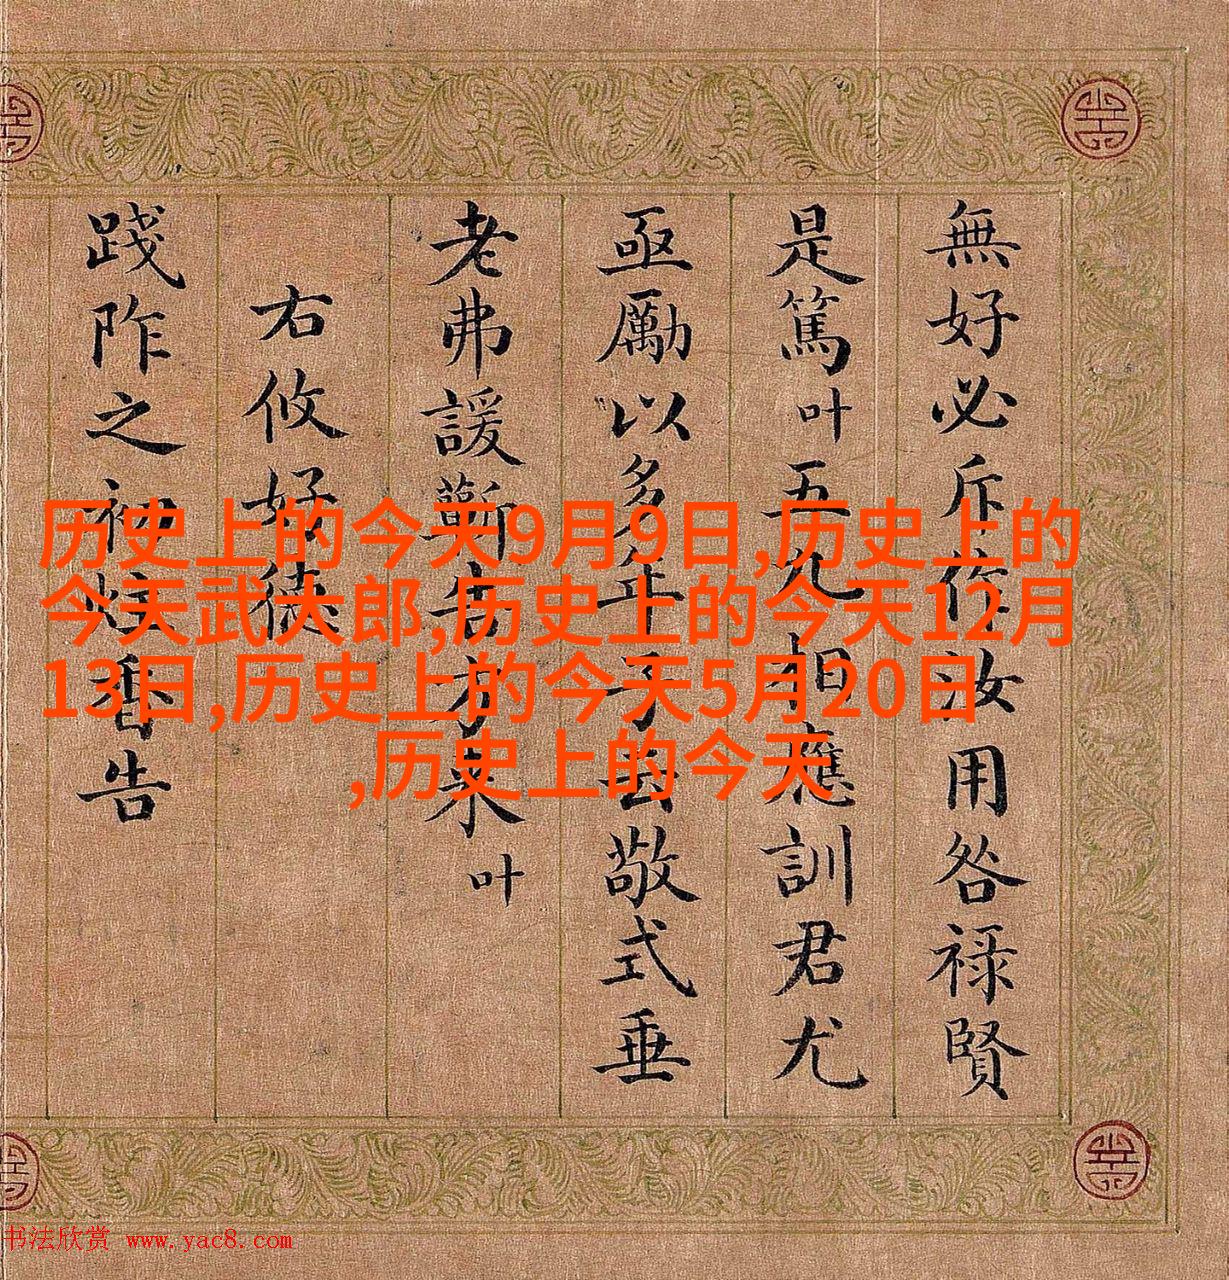 無好必斥作汝用咎祿賢
是篤叶五九相應訓君尤
亟勵以多年予敬式垂
老弗諼蘄告方來叶
右攸好德
踐阼之初炷香告
历史上的今天9月9日,历史上的
今天武大郎,历史上的今天12月
13日,历史上的今天5月20日
,历史上的今天
书法欣赏 www.yac8.com